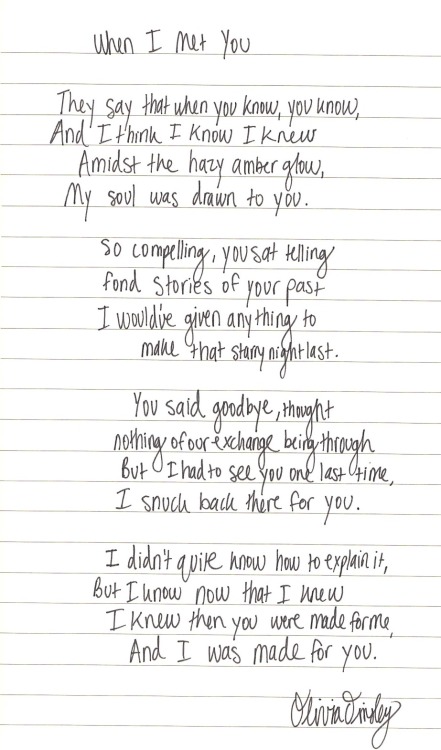 When I Met You
They say that when you know, you know,
And I think I know I knew
Amidst the hazy amber glow,
My soul was drawn to you.
So compelling, you sat telling
fond stories of your past
I would've given anything to
make that starry night last.
You said goodbye, thought
nothing of our exchange being through
But I had to see you one last time,
I snuck back there for you.
I didn't quite know how to explain it,
But I know now that I knew
I knew then you were made for me,
And I was made for you.
Olivia